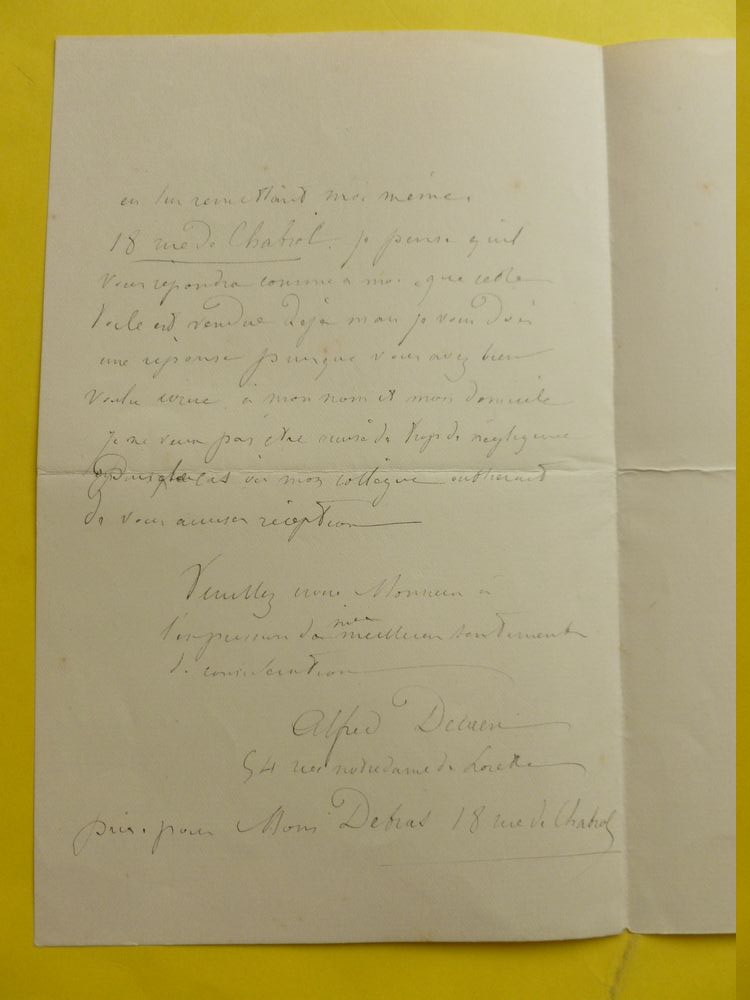 en lui remettant moi même.
18 rue de Chabrol. je pense qu'il
vous repondra comme a moi, que cette
toile est vendue deja mais je vous dois
une réponse puisque vous avez bien
voulu ecrire à mon nom et mon domicile
je ne veux pas être accusé de trop de négligence
cas où mon collègue oublierait
de vous accuser réception
Veuillez croire Monsieur à
l'expression de mes meilleurs sentiments
de consideration
Alfred
54 rue notre dame de Lorette
pour Mons Debras 18 rue de Chabrol